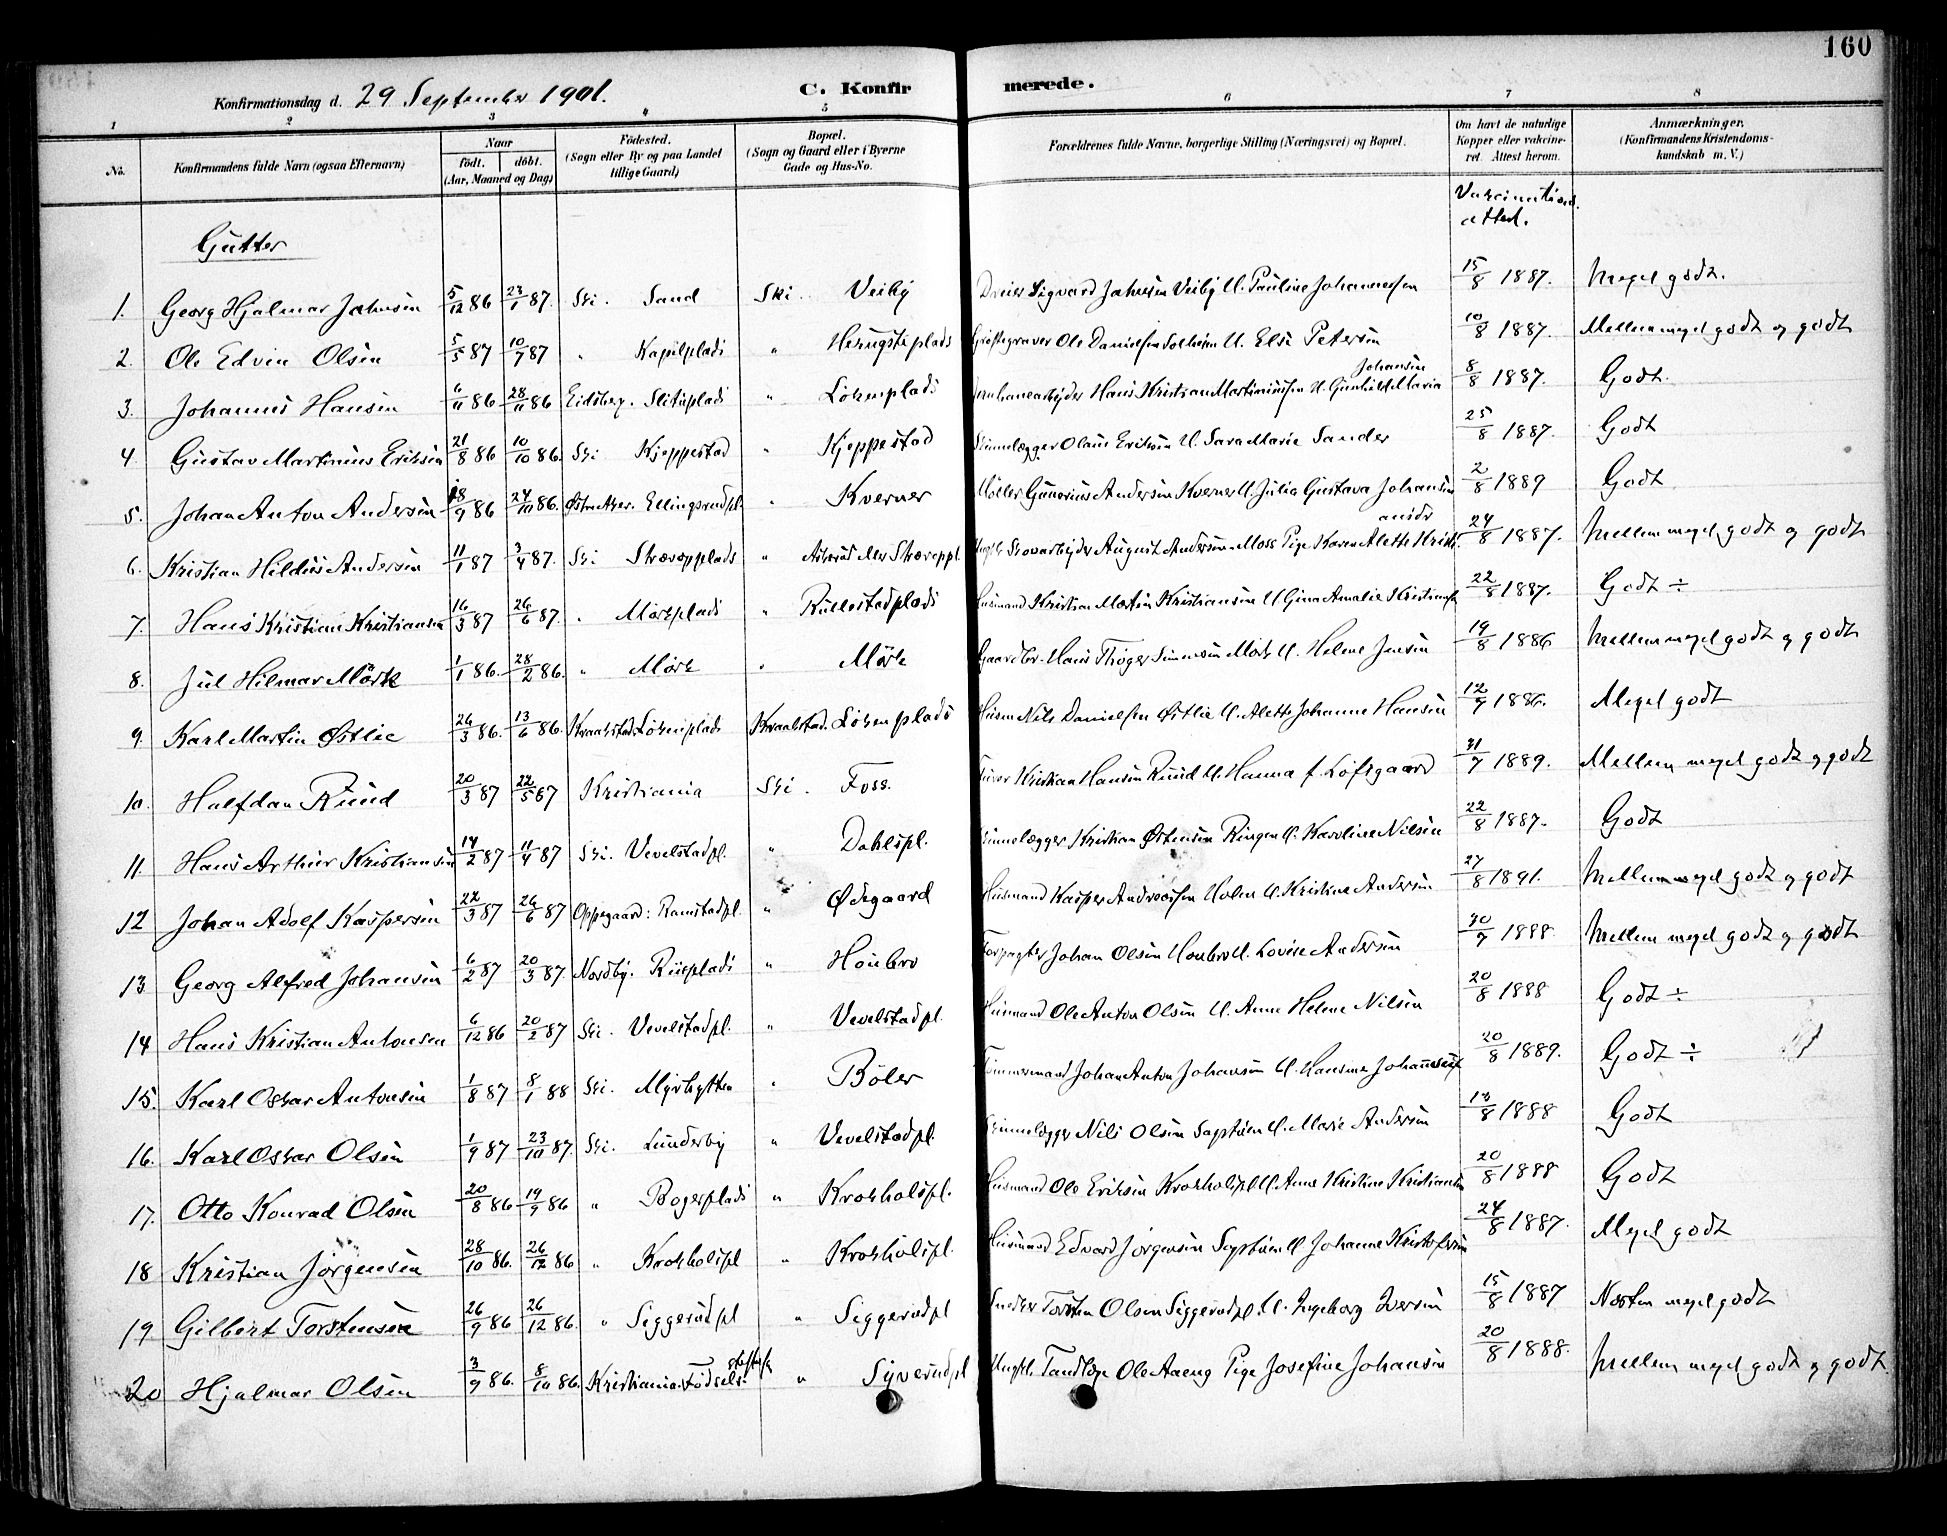 160
Konfirmationsdag d. 29 September 1901. C. Konfirmerede.
1 2 3 4 5 6 7 8
No. Konfirmandens fulde Navn (ogsaa Efternavn) Naar födt. döbt. (Aar, Maaned og Dag) Födested. (Sogn eller By og paa Landet tillige Gaard) Bopæl. (Sogn og Gaard eller i Byerne Gade og Hus-No. Forældrenes fulde Navne, borgerlige Stilling (Næringsvei) og Bopæl. Om havt de naturlige Kopper eller vakcineret. Attest herom. Anmærkninger. (Konfirmandens Kristendomskundskab m. V.)
Vakcinations attest.
Gutter
1. Georg Hjalmar Jahnsen 5/12 86 23/1 87. Ski. Sand Ski. Veiby Dreier Sigvard Jahnsen Veiby U. Pauline Johannessen 15/8 1887. Meget godt.
2. Ole Edvin Olsen 5/5 87 10/7 87 " Kapelplads " Haugsteplads Grøftegraver Ole Danielsen Solheim U. Else Petersen 10/8 1887. Mellem meget godt og godt
3. Johannes Hansen 6/11 86 28/11 86 Eidsberg. Slituplads " Lökenplads Hans Kristian Martiniussen U. Gunhild Maria Johansen 8/8 1887. Godt.
4. Gustav Martinius Eriksen 21/8 86 10/10 86. Ski Kjeppestad " Kjeppestad Stenlægger Olaus Eriksen U. Sara Marie Sander 25/8 1887. Godt
5. Johan Anton Andersen 18/9 86 24/10 86. Østre Aker. Ellingsrudpl. " Kverner Møller Gunerius Andersen Kverner U. Julia Gustava Johansen 2/8 1889 Godt
6. Kristian Hildus Andersen 11/1 87 3/4 87. Ski Skorepplads " Ungk. Skovarbeider August Andersen Moss Pige Karen Alette Kristiansdr 24/8 1887. Mellem meget godt og godt
7. Hans Kristian Kristiansen 16/3 87 26/6 87. " Mörkplads " Rullestadplads Husmand Kristian Martin Kristiansen U. Gina Amalie Kristiansen 22/8 1887. Godt ÷
8. Jul Hilmar Mörk 1/1 86. 28/2 86. " Mörk " Mörk Gaardbr. Hans Thøger Simensen Mörk U. Helene Jensen 19/8 1886 Mellem meget godt og godt
9. Karl Martin Østlie 26/3 86. 13/6 86. Kraakstad. Lökenplads Kraakstad. Lökenplads Husm Nils Danielsen Østlie U. Alette Johanne Hansen 12/9 1886. Meget godt
10. Halfdan Ruud 20/3 87 22/5 87 Kristiania Ski. Foss. Kristian Hansen Ruud U. Hanna f. Løfsgaard 31/7 1889. Mellem meget godt og godt
11. Hans Arthur Kristiansen 14/2 87 11/4 87 Ski. Vevelstadpl. " Dahlspl. Stenlægger Kristian Østensen Ringen U. Karoline Nilsen 22/8 1887. Godt
12 Johan Adolf Kaspersen 22/3 87 26/6 87 Oppegaard: Ramstadpl. " Ødegaard Husmand Kasper Andreassen Holm U. Kristine Andersen 27/8 1891. Mellem meget godt og godt
13 Georg Alfred Johansen 6/2 87 20/3 87. Nordby. Riisplads " Haubro Forpagter Johan Olsen Haubro U. Lovise Andersen 30/7 1888 Mellem meget godt og godt
14 Hans Kristian Antonsen 6/12 86 20/2 87 Ski. Vevelstadpl. " Vevelstadpl. Husmand Ole Anton Olsen U. Anne Helene Nilsen 20/8 1888 Godt ÷
15. Karl Oskar Antonsen 1/8 87 8/1 88 Ski. Myrhytten " Böler Tömmermand Johan Anton Johansen U. Hansine Johannesen 20/8 1889. Godt ÷
16. Karl Oskar Olsen 1/9 87 23/10 87. Ski. Lunderby " Vevelstadpl. Stenlægger Nils Olsen Sagstuen U. Marie Andersen 13/8 1888 Godt
17. Otto Konrad Olsen 20/8 86 19/9 86 " Bogerplads " Krokholspl. Husmand Ole Eriksen Krokholspl U. Anne Kristine Kristiansen 20/8 1888 Godt
18 Kristian Jörgensen 28/10 86. 26/12 86 " Krokholspl " Krokholspl. Husmand Edvard Jørgensen Sagstuen U Johanne Kristofersen 24/8 1887. Meget godt
19 Gilbert Torstensen 26/9 86 26/12 86. " Siggerudpl " Siggerudpl Snedker Torsten Olsen Siggerudpl. U. Ingeborg Iversen 15/8 1887 Næsten meget godt
20 Hjalmar Olsen 3/9 86. 8/10 86. Kristiania. Födselsstiftelse " Syverudpl Ungk. Tandlæge Ole Aaeng Pige Josefine Johansen 20/8 1888. Mellem meget godt og godt